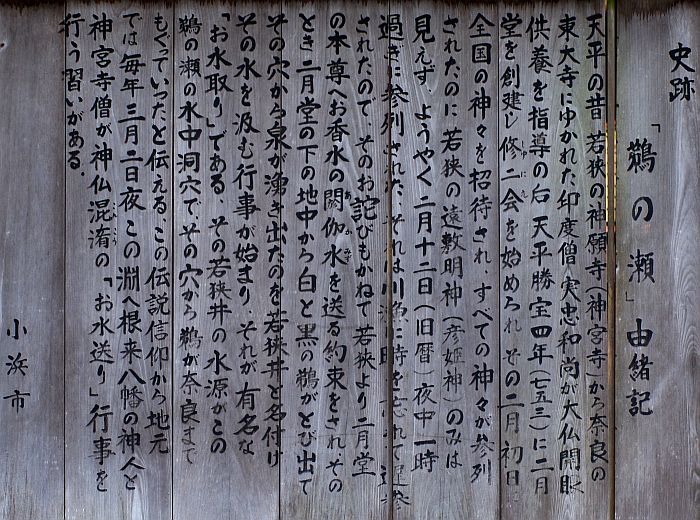 史跡
「鵜の瀬」由緒記
天平の昔 若狭の神願寺(神宮寺)から奈良の
東大寺にゆかれた印度僧 実忠和尚が大仏開眼
供養を指導の后 天平勝宝四年(七五二)に二月
堂を創建し修二会を始められ その二月初日
全国の神々を招待され、すべての神々が参列
されたのに若狭の遠敷明神(彦姫神)のみは
見えず、ようやく二月十二日(旧暦)夜中一時
過ぎに参列された、それは川漁に時を忘れて遅参
されたので そのお詫びもかねて 若狭より二月堂
の本尊へお香水の閼伽水を送る約束をされ、その
とき二月堂の下の地中から白と黒の鵜がとび出て
その穴から泉が湧き出たのを若狭井と名付け
その水を汲む行事が始まり、それが有名な
「お水取り」である、その若狭井の水源がこの
鵜の瀬の水中洞穴で、その穴から鵜が奈良まで
もぐっていったと伝える、この伝説信仰から地元
では毎年 三月二日夜 この淵へ根来八幡の神人と
神宮寺僧が神仏混淆の「お水送り」行事を
行う習いがある。
小浜市